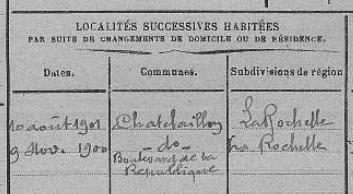 LOCALITÉS SUCCESSIVES HABITÉES
PAR SUITE DE CHANGEMENTS DE DOMICILE OU DE RÉSIDENCE.
Dates. Communes. Subdivisions de région
10 août 1901 Chatelaillon La Rochelle
9 Nov. 1900 - do - La Rochelle
Boulevard de la
République